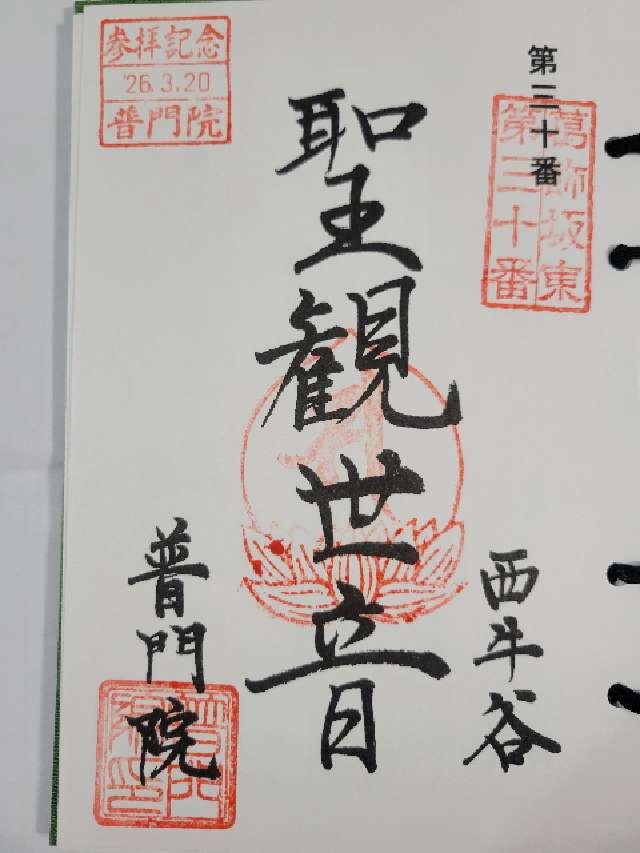 第三十番
葛飾坂東
第三十番
西牛谷
聖観世音
参拝記念
'26.3.20
普門院
普門院
普門院印